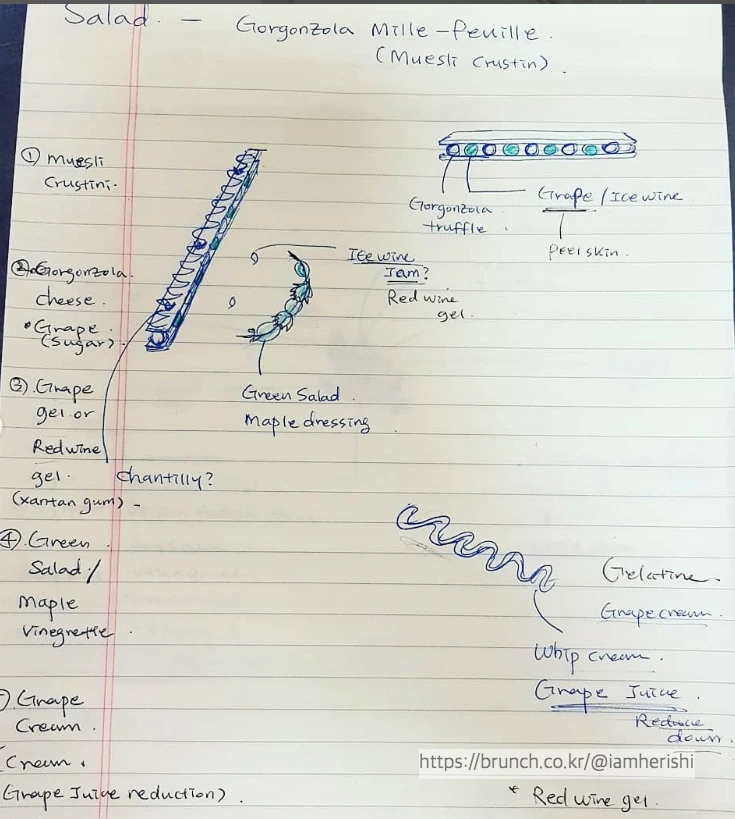 Salad. - Gorgonzola Mille-feuille.
(Muesli Crustin).
① Muesli
Crustini.
Gorgonzola
truffle.
Grape / Ice wine
Peel skin.
② Gorgonzola
cheese.
• Grape.
(Sugar)
Ice wine
Jam?
Red wine
gel.
Green Salad.
Maple dressing
③ Grape
gel or
Red wine
gel.
(xantan gum) -
Chantilly?
④ Green
Salad /
Maple
Vinegrette.
Gelatine.
Grape cream.
Whip cream.
Grape Juice.
Reduce
down.
Grape
Cream.
(Cream.
(Grape Juice reduction).
https://brunch.co.kr/@iamherishi
* Red wine gel.